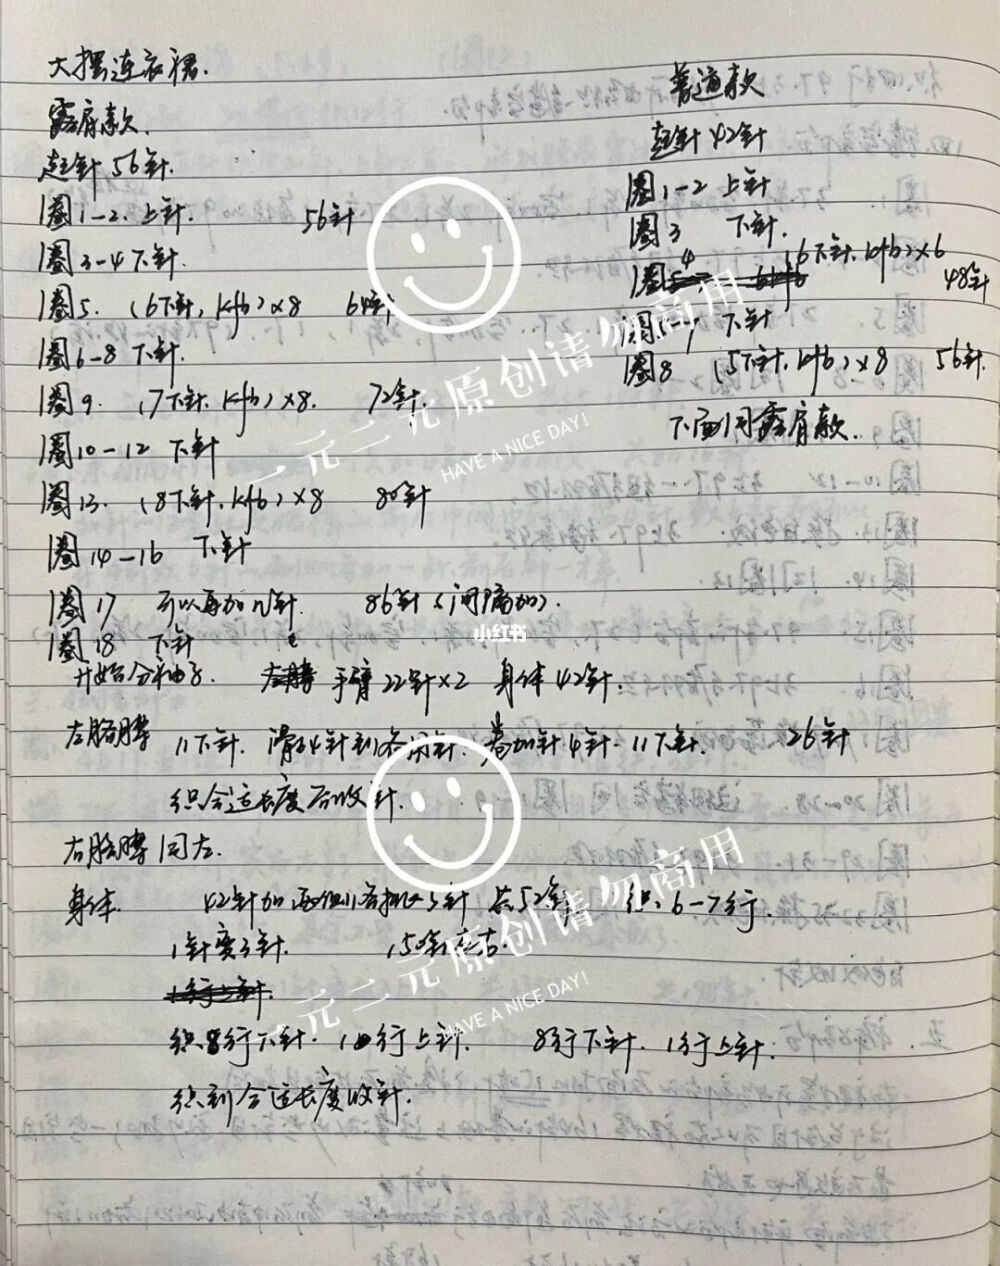 大摆连衣裙.
露肩款.
起针 56针.
圈1-2. 上针. 56针
圈3-4 下针.
圈5. (6下针, kfb)×8 64针
圈6-8 下针.
圈9. (7下针. kfb)×8. 72针.
圈10-12 下针
圈13. (8下针. kfb)×8 80针
圈14-16 下针
圈17 可以再加n针. 86针(间隔加).
圈18 下针
开始分袖子. 手臂22针×2 身体42针.
左胳膊 11下针. 滑24针到备用针. 卷加针4针. 11下针. 26针
织合适长度后收针.
右胳膊同左.
身体. 42针加两侧各挑5针 共52针 织6-7行.
1针变3针. 150针左右.
织8行下针. 1行上针. 8行下针. 1行上针.
织到合适长度收针.
普通款
起针42针
圈1-2 上针
圈3 下针.
圈4 (6下针. kfb)×6 48针
圈5-7 下针
圈8 (5下针. kfb)×8 56针
下面同露肩款.
一元二元原创请勿商用
HAVE A NICE DAY!
小红书
一元二元原创请勿商用
HAVE A NICE DAY!